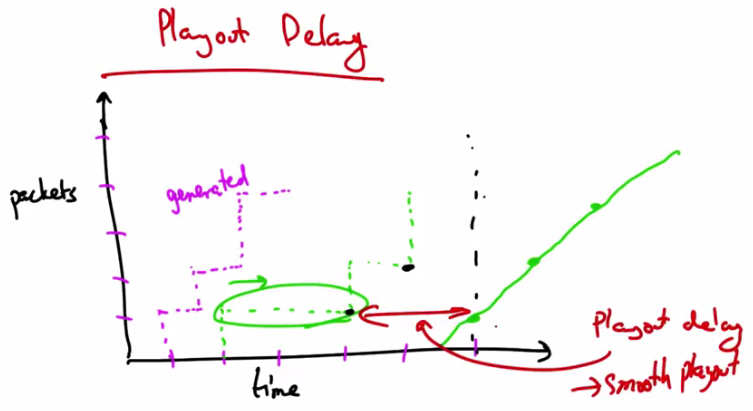 Playout Delay
packets
generated
time
Playout delay
→ Smooth playout